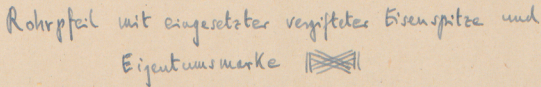 Rohrpfeil mit eingesetzter vergifteter Eisenspitze und
Eigentumsmarke